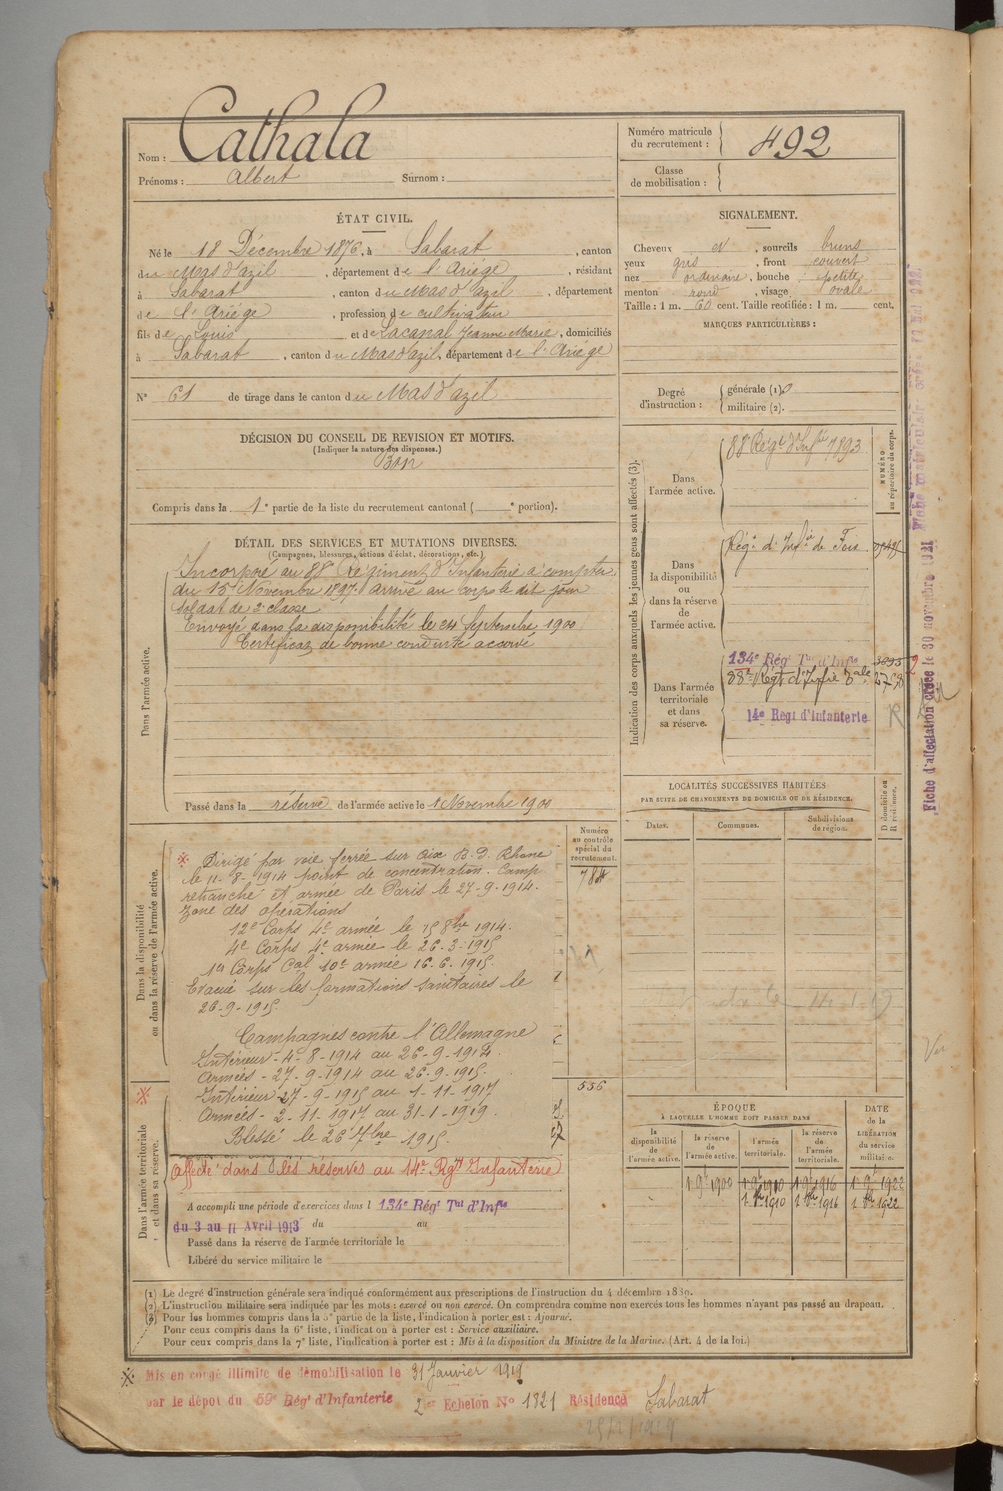 Nom : Cathala
Prénoms : Albert Surnom :
Numéro matricule du recrutement : 492
Classe de mobilisation :
ÉTAT CIVIL.
Né le 18 Décembre 1876, à Sabarat, canton
du Mas d'azil, département de l'Ariège, résidant
à Sabarat, canton du Mas d'azil, département
de l'Ariège, profession de cultivateur
fils de Louis et de Lacanal Jeanne Marie, domiciliés
à Sabarat, canton du Mas d'azil, département de l'Ariège
N° 61 de tirage dans le canton du Mas d'azil
SIGNALEMENT.
Cheveux et, sourcils bruns
yeux gris, front couvert
nez ordinaire, bouche petite
menton rond, visage ovale
Taille : 1 m. 60 cent. Taille rectifiée : 1 m. cent.
MARQUES PARTICULIÈRES :
Degré d'instruction : générale (1). 0
militaire (2).
DÉCISION DU CONSEIL DE REVISION ET MOTIFS.
(Indiquer la nature des dispenses.)
Bon
Compris dans la 1e partie de la liste du recrutement cantonal ( e portion).
DÉTAIL DES SERVICES ET MUTATIONS DIVERSES.
(Campagnes, blessures, actions d'éclat, décorations, etc.)
Dans l'armée active.
Incorporé au 88e Régiment d'Infanterie à compter
du 15 Novembre 1897. Arrivé au corps le dit jour
soldat de 2e classe
Envoyé dans la disponibilité le 24 septembre 1900
Certificat de bonne conduite accordé
Passé dans la réserve de l'armée active le 1 Novembre 1900
Indication des corps auxquels les jeunes gens sont affectés (3).
NUMÉRO au répertoire du corps.
Dans l'armée active.
88e Régt d'Infie 7893
Dans la disponibilité ou dans la réserve de l'armée active.
Régt d'Infie de Foix
Dans l'armée territoriale et dans sa réserve.
134e Régt Tal d'Infie
88e Régt d'Infie
14e Régt d'Infanterie
Fiche d'affectation créée le 30 novembre 1921
LOCALITÉS SUCCESSIVES HABITÉES
PAR SUITE DE CHANGEMENTS DE DOMICILE OU DE RÉSIDENCE.
Dates. Communes. Subdivisions de région. D domicile ou R résidence.
Numéro au contrôle spécial du recrutement.
784
556
Dans la disponibilité ou dans la réserve de l'armée active.
Dirigé par voie ferrée sur Aix B. D. Rhone
le 11-8-1914 point de concentration. Camp
retranché et armée de Paris le 27-9-1914.
zone des opérations
12e Corps 4e armée le 15 8bre 1914.
4e Corps 4e armée le 26-3-1915
1er Corps Cal 10e armée 16.6.1915.
Evacué sur les formations sanitaires le
26-9-1915.
Campagnes contre l'Allemagne
Intérieur - 4-8-1914 au 26-9-1914.
Armées - 27-9-1914 au 26-9-1915.
Intérieur - 27-9-1915 au 1-11-1917
Armées - 2-11-1917 au 31-1-1919.
Blessé le 26 7bre 1915.
Dans l'armée territoriale et dans sa réserve.
Affecté dans les réserves au 14e Rgt Infanterie
A accompli une période d'exercices dans l 134e Régt Tal d'Infie
du 3 au 11 Avril 1913 du au
Passé dans la réserve de l'armée territoriale le
Libéré du service militaire le
ÉPOQUE
A LAQUELLE L'HOMME DOIT PASSER DANS
la disponibilité de l'armée active.
la réserve de l'armée active.
l'armée territoriale.
la réserve de l'armée territoriale.
DATE de la LIBÉRATION du service militaire.
1 9b 1900 1 9b 1910 1 9b 1916 1 9b 1922
1 8bre 1910 1 8bre 1916 1 8bre 1922
(1) Le degré d'instruction générale sera indiqué conformément aux prescriptions de l'instruction du 4 décembre 1889.
(2) L'instruction militaire sera indiquée par les mots : exercé ou non exercé. On comprendra comme non exercés tous les hommes n'ayant pas passé au drapeau.
(3) Pour les hommes compris dans la 5e partie de la liste, l'indication à porter est : Ajourné.
Pour ceux compris dans la 6e liste, l'indication à porter est : Service auxiliaire.
Pour ceux compris dans la 7e liste, l'indication à porter est : Mis à la disposition du Ministre de la Marine. (Art. 4 de la loi.)
Mis en congé illimité de démobilisation le 31 Janvier 1919
par le dépôt du 59e Régt d'Infanterie 2e Echelon N° 1821 Résidence Sabarat